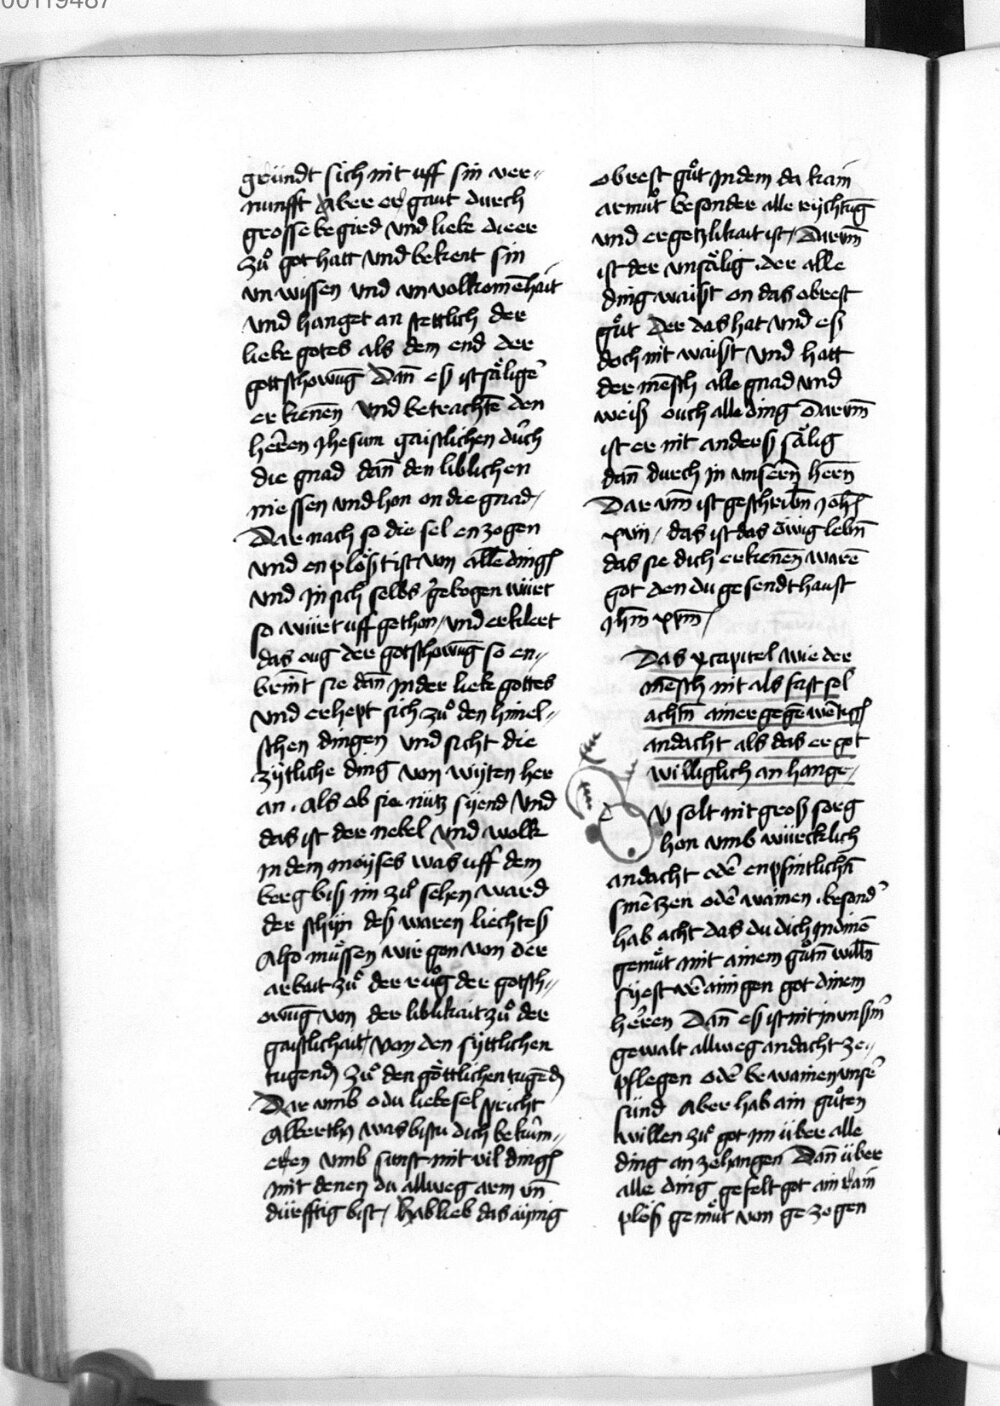 00119487
gründt sich nit uff sin ver-
nunfft Aber er gaut durch
grosse begird vnd liebe die er
zuͦ got hatt vnd bekent sin
vnwissen vnd vnvolkomēhait
vnd hanget an stettlich der
liebe gotes als dem end der
gottschowūg Dan̄ eß ist såliger̄
erkenēn vnd betrachtē den
her̄en Jhesum gaistlichen durch
die gnad dan̄ den liblichen
niessen vnd hon on die gnad /
Dar nach so die sel enzogen
vnd enplößt ist von alle dingß
vnd in sich selbs gebogen würt
so würt uff gethon / vnd erklert
das oug der gotschowūg so en-
brint sie dan̄ in der liebe gottes
vnd erhept sich zuͦ den himel-
schen dingen vnd sicht die
zijtliche ding von wijten her
an . als ob sie nütz sijend vnd
das ist der nebel vnd wolk
in dem moijses was uff dem
berg biß im zuͦ sehen ward
der schijn deß waren liechtes
Also müssen wir gon von der
arbait zuͦ der ruͦg der gotsch-
owūg von der liblikait zuͦ der
gaistlichait / von den sijttlichen
tugend zuͦ den göttlichen tugēd
Dar vmb o du liebe sel spricht
Alberthꝰ was bistu dich bekūm-
eren vmb sunst mit vil dingß
mit denen du allweg arm vn̄
dürfftig bist / Hab lieb das aijnig
obrest guͦt in dem da kain
armuͦt besonder alle rijchtūg
vnd ergetzlikait ist / Darum̄
ist der vnsålig . der alle
ding waißt on das obrest
guͦt Der das hat vnd eß
doch nit waißt vnd hatt
der mēsch alle gnad vnd
weiß ouch alle ding Darum̄
ist er nit anderß sålig
dan̄ durch in vnsern̄ hern̄
Dar vm̄ ist geschribn̄ Joh̄
xvii / das ist das ewig lebn̄
das sie dich erkenēn warē
got den du gesendt haust
Jhm̄ xpm̄ /
Das x capitel wie der
mēsch nit als fast sol
achtn̄ ainer gegēwētigß
andacht als das er got
williglich an hange /
DV solt nit groß sorg
hon vmb würcklich
andacht oder̄ enpfintlichn̄
smertzen oder̄ wainen . besond̄
hab acht das du dich in dinē
gemuͤt mit ainem guͦtn̄ willn̄
sijest verainigen got dinem
her̄en Dan̄ eß ist nit in vnsm̄
gewalt allweg andacht ze-
pflegen oder̄ bewainen vnser̄
sünd Aber hab ain guͦten
willen zuͦ got im über alle
ding an zehangen Dan̄ über
alle ding gefelt got ain rain
plöß gemuͤt von gezogen